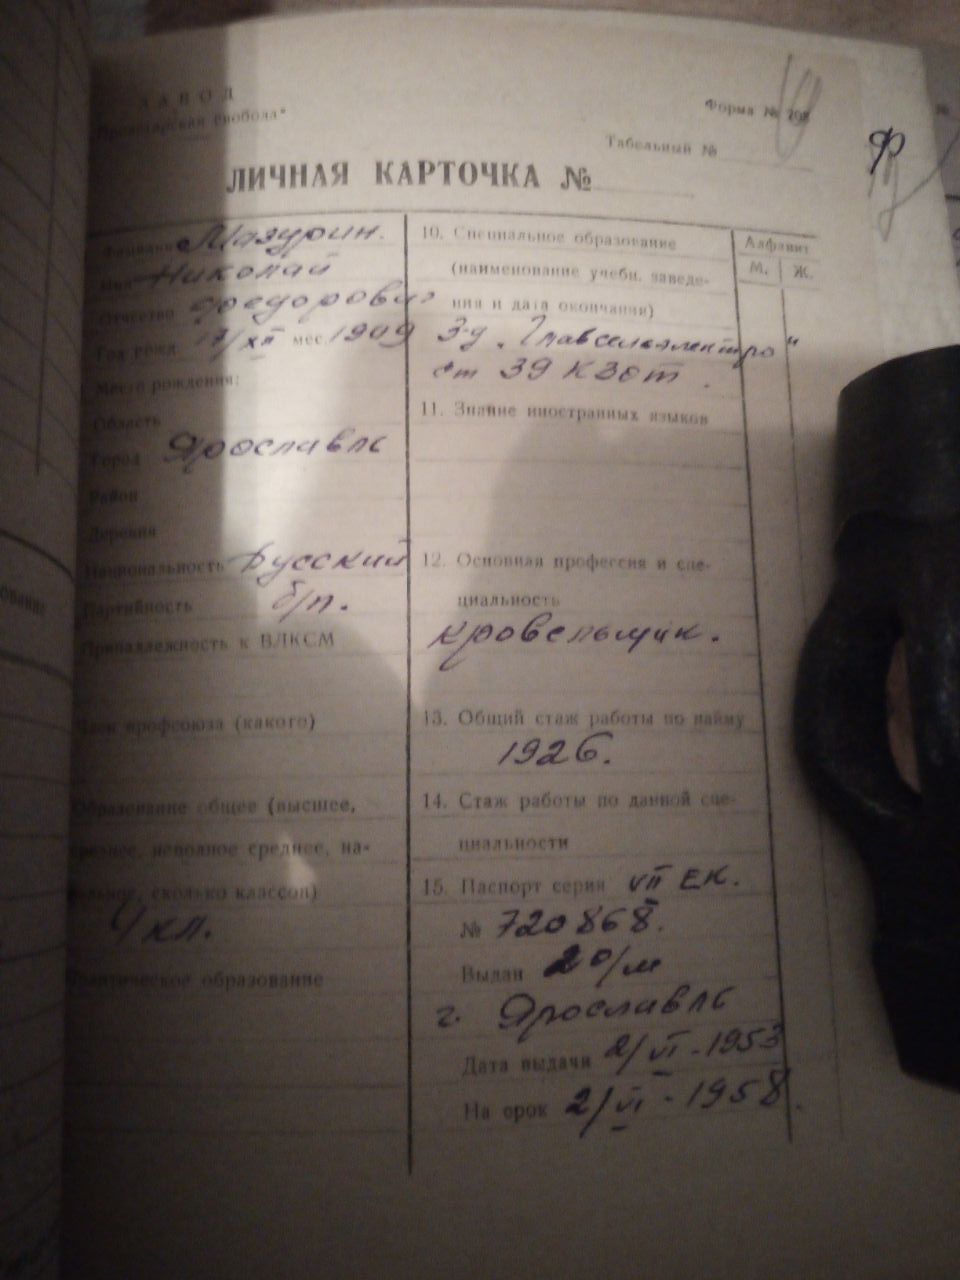 ЗАВОД
Пролетарская свобода"
Форма № 208
Табельный №
Ф
ЛИЧНАЯ КАРТОЧКА №
Фамилия Мазурин.
Имя Николай
Отчество Федорович
Год рожд. 17/XII мес. 1909
Место рождения:
Область
Город Ярославль
Район
Деревня
Национальность Русский
Партийность б/п.
Принадлежность к ВЛКСМ
Член профсоюза (какого)
Образование общее (высшее,
среднее, неполное среднее, на-
чальное, сколько классов)
4 кл.
Политическое образование
10. Специальное образование
(наименование учебн. заведе-
ния и дата окончания)
З-д „Главсельэлектро"
ст 39 КЗОТ.
11. Знание иностранных языков
12. Основная профессия и спе-
циальность
кровельщик.
13. Общий стаж работы по найму
1926.
14. Стаж работы по данной спе-
циальности
15. Паспорт серия VII ЕК.
№ 720868.
Выдан 2 о/м
г. Ярославль
Дата выдачи 2/VI-1953
На срок 2/VI-1958.
Алфавит
М. Ж.